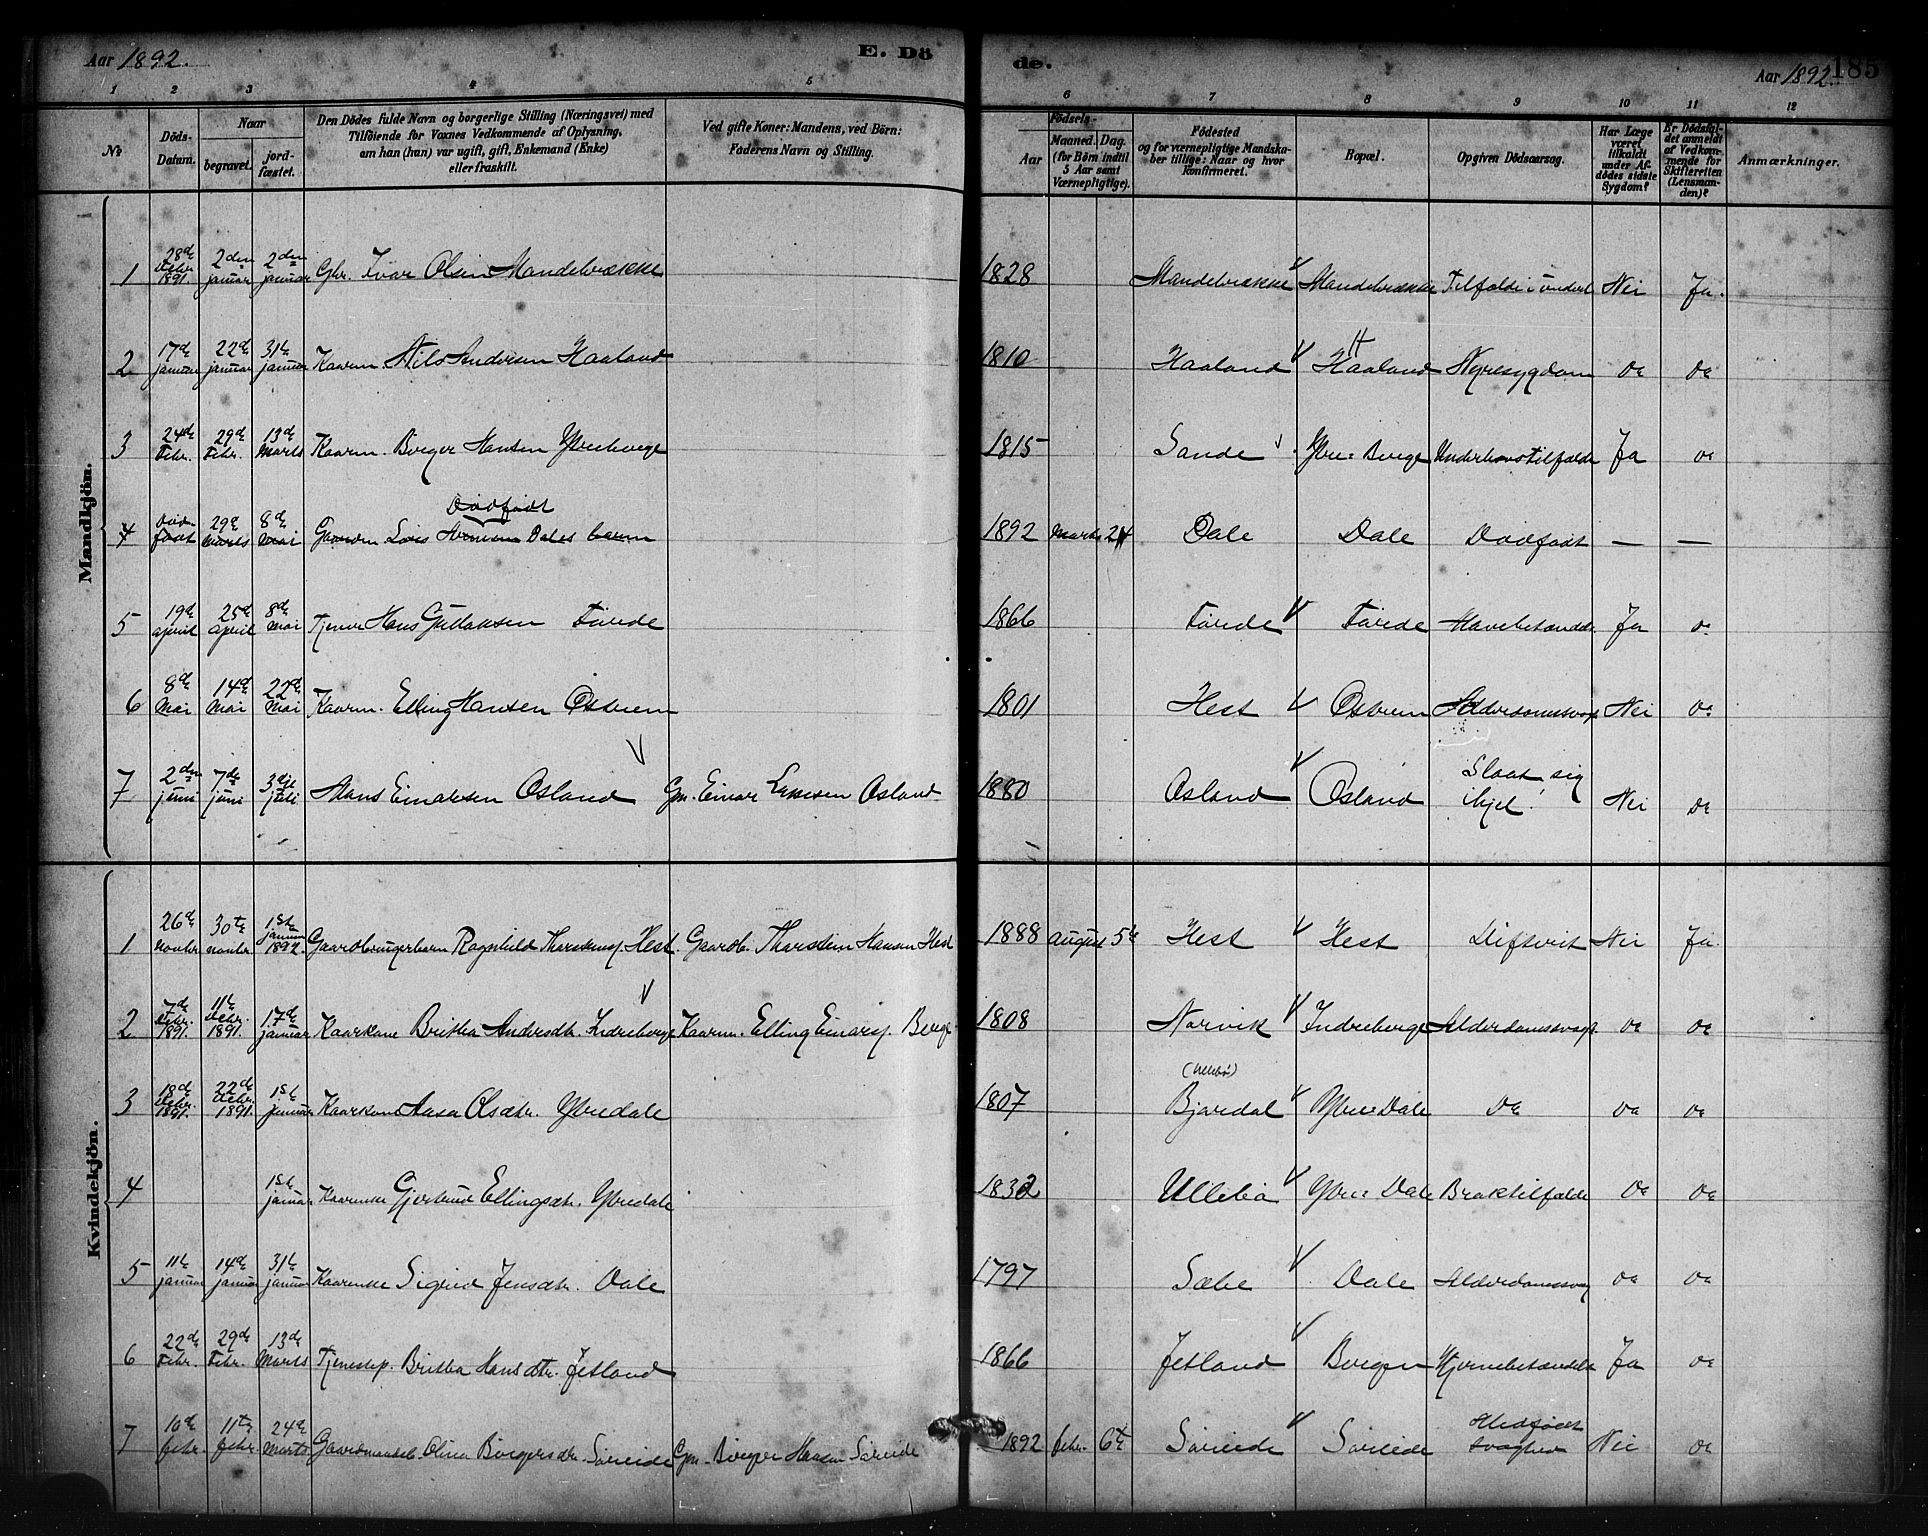 Aar 1892.
E. Dö
de.
Aar 1892.
185
1 2 3 4 5 6 7 8 9 10 11 12
No
Döds-Datum.
Naar
begravet.
jord-fæstet.
Den Dödes fulde Navn og borgerlige Stilling (Næringsvei) med
Tilföiende for Voxnes Vedkommende af Oplysning,
om han (hun) var ugift, gift, Enkemand (Enke)
eller fraskilt.
Ved gifte Koner: Mandens, ved Börn:
Faderens Navn og Stilling.
Födsels-
Aar
Maaned. Dag.
(for Börn indtil
5 Aar samt
Værnepligtige).
Födested
og for værnepligtige Mandska-
ber tillige: Naar og hvor
konfirmeret.
Bopæl.
Opgiven Dödsaarsag.
Har Læge
været
tilkaldt
under Af-
dødes sidste
Sygdom?
Er Dödsfal-
det anmeldt
af Vedkom-
mende for
Skifteretten
(Lensman-
den)?
Anmærkninger.
Mandkjön.
1 28de Debr. 1891. 2den januar 2den januar Gbr. Ivar Olsen Mandelrække 1828 Mandelrække Mandelrække Tilfælde i underl Nei Ja.
2 17de januar 22de januar 31te januar Kaarm. Nils Andersen Haaland 1810 Haaland Haaland Nyresygdom do do
3 24de Febr. 29de Febr. 13de Marts Kaarm. Birger Hansen Ytreberge 1815 Sande Ytre Berge Underlivstilfælde Ja do
4 Död-födt 29de Marts 8de Mai Gaardm Dales barn Dödfödt 1892 Marts 24 Dale Dale Dödfödt — —
5 19de april 25de April 8de Mai Tjener Hans Gullaksen Förde 1866 Förde Förde Mavebetændel. Ja do
6 8de Mai 14de Mai 22de Mai Kaarm. Elling Hansen Østrem 1801 Hest Østrem Alderdomssvag. Nei do
7 2den juni 7de juni 3dje juli Hans Einarsen Osland Gm. Einar Larsen Osland 1880 Osland Osland Slaat sig ihjel! Nei do
Kvindekjön.
1 26de novbr 30te novbr. 1ste januar 1892. Gaardbrugerbarn Ragnhild Thorstensd. Hest. Gaardb. Thorstein Hansen Hest 1888 august 5te Hest Hest Difterit Nei Ja.
2 7de Debr. 1891. 11te Debr. 1891. 17de januar Kaarkone Britha Andersdtr. Indreberge Kaarm. Elling Einars. Berge 1808 Norvik Indreberge Alderdomssvagh do do
3 18de Debr. 1891. 22de Debr. 1891. 1ste januar Kaarkone Aasa Olsdtr. Ytredale 1807 Bjordal Ytre Dale do do do
4 1ste januar Kaarenke Gjertrud Ellingsdtr. Ytredale 1832 Ullebö Ytre Dale Broktilfælde do do
5 11te januar 14de januar 31te januar Kaarenke Sigrid Jensdtr. Dale 1797 Sæbe Dale Alderdomssvag do do
6 22de Febr. 29de Febr. 13de Marts Tjenestep. Britha Hansdtr. Jetland 1866 Jetland Bergen Hjernebetændels Ja do
7 10de febr. 11te febr. 24de Marts Gaardmandsb Olina Birgersdtr. Söreide Gm. Birger Hansen Söreide 1892 febr. 6te Söreide Söreide Medfødt svaghed Nei do